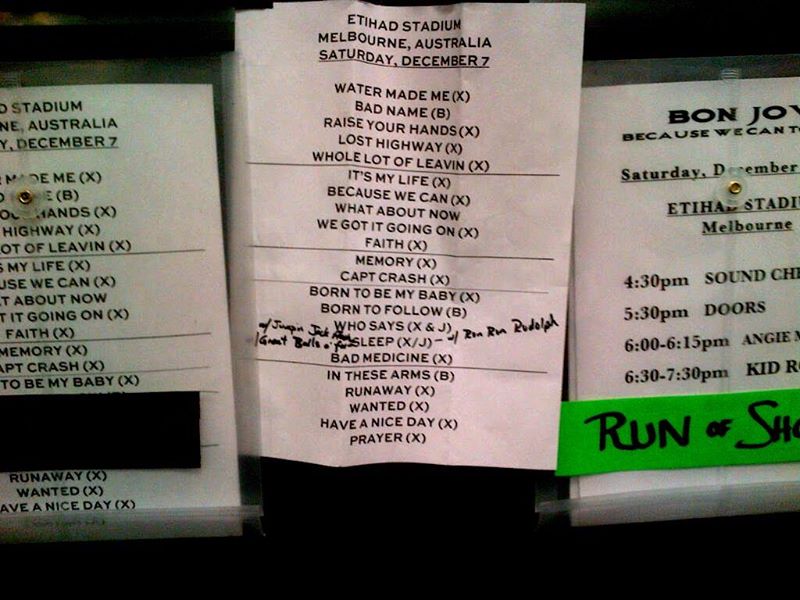 D STADIUM
NE, AUSTRALIA
Y, DECEMBER 7
MADE ME (X)
(B)
HANDS (X)
HIGHWAY (X)
OT OF LEAVIN (X)
S MY LIFE (X)
USE WE CAN (X)
AT ABOUT NOW
T IT GOING ON (X)
FAITH (X)
MEMORY (X)
APT CRASH (X)
TO BE MY BABY (X)
RUNAWAY (X)
WANTED (X)
AVE A NICE DAY (X)
ETIHAD STADIUM
MELBOURNE, AUSTRALIA
SATURDAY, DECEMBER 7
WATER MADE ME (X)
BAD NAME (B)
RAISE YOUR HANDS (X)
LOST HIGHWAY (X)
WHOLE LOT OF LEAVIN (X)
IT'S MY LIFE (X)
BECAUSE WE CAN (X)
WHAT ABOUT NOW
WE GOT IT GOING ON (X)
FAITH (X)
MEMORY (X)
CAPT CRASH (X)
BORN TO BE MY BABY (X)
BORN TO FOLLOW (B)
w/ Jumpin Jack WHO SAYS (X & J)
w/ Great Balls o' fire SLEEP (X/J) - w/ Run Run Rudolph
BAD MEDICINE (X)
IN THESE ARMS (B)
RUNAWAY (X)
WANTED (X)
HAVE A NICE DAY (X)
PRAYER (X)
BON JOV
BECAUSE WE CAN T
Saturday, December
ETIHAD STADIU
Melbourne
4:30pm SOUND CHE
5:30pm DOORS
6:00-6:15pm ANGIE M
6:30-7:30pm KID RO
RUN OF SHO